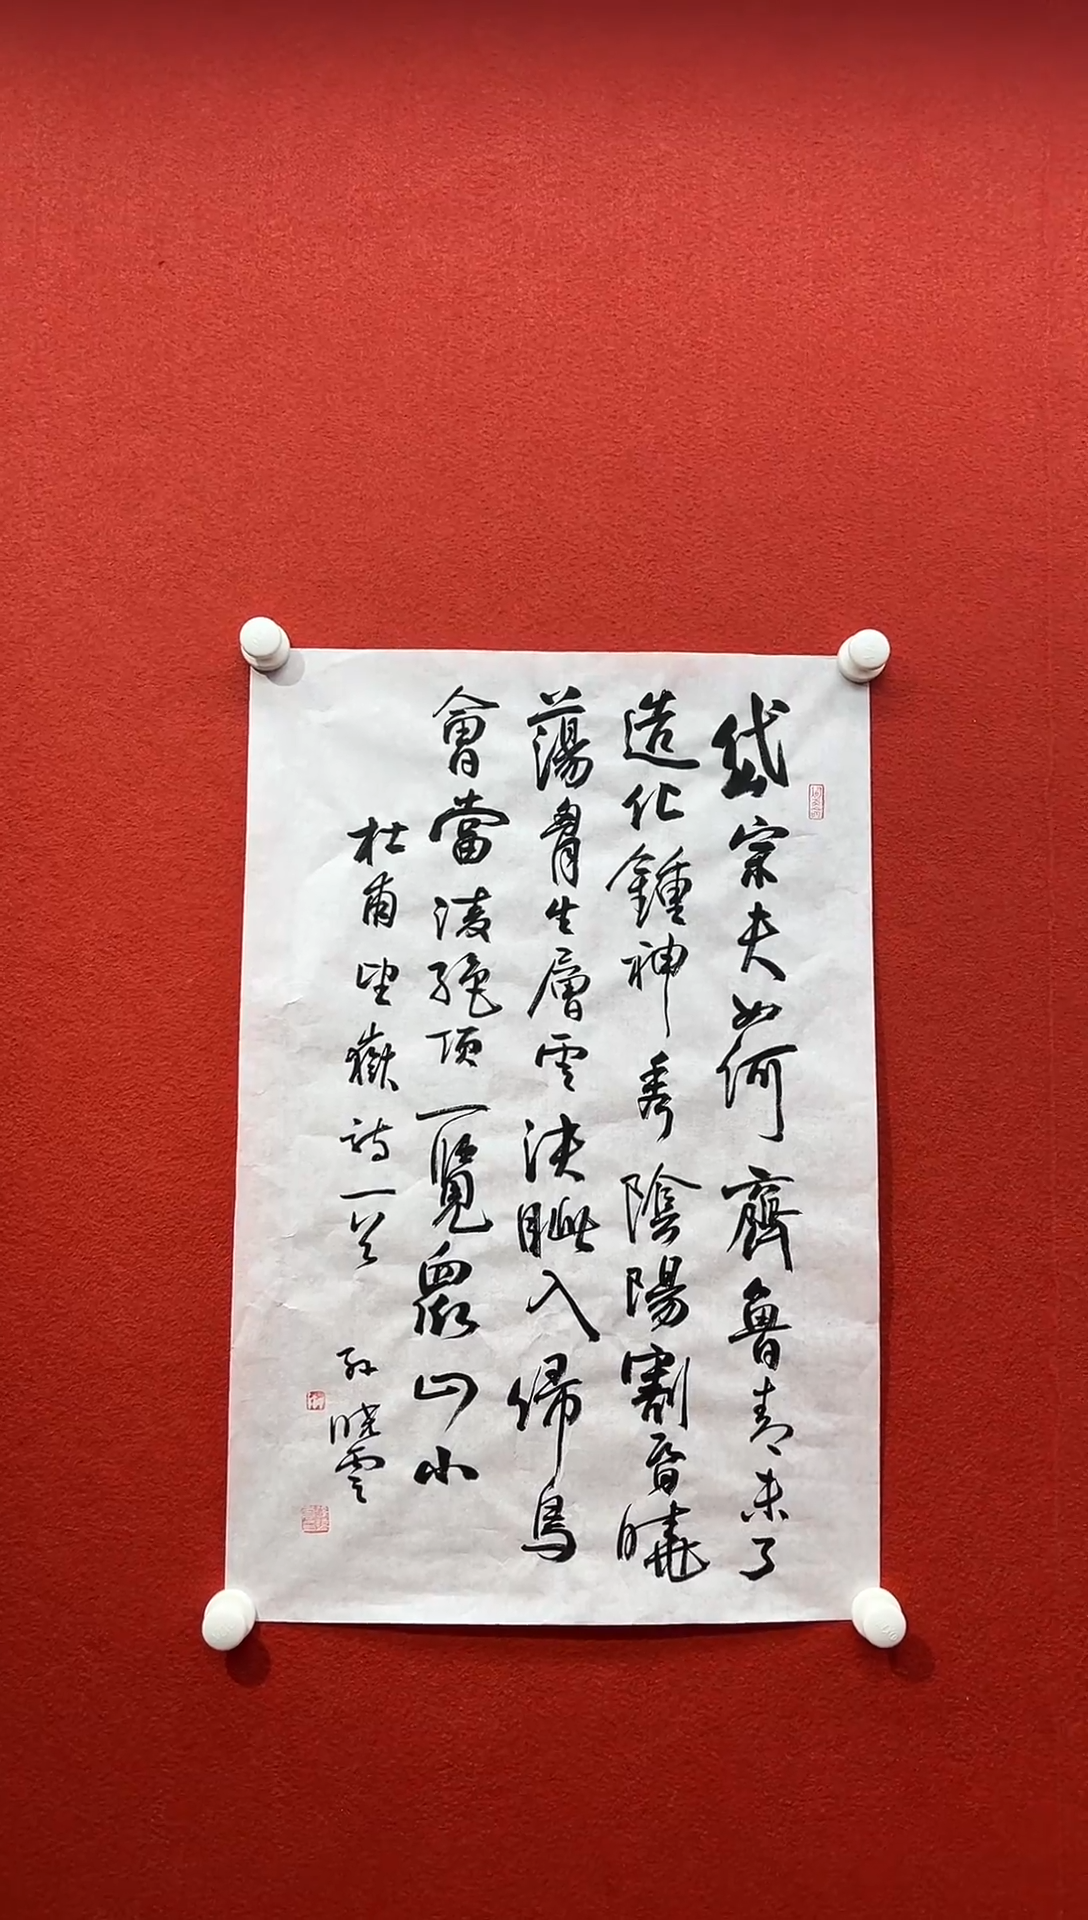 岱宗夫如何齊魯青未了
造化鍾神秀陰陽割昏曉
蕩胷生層雲決眦入歸鳥
會當凌絕頂一覽衆山小
杜甫望嶽詩一首
孙曉雲